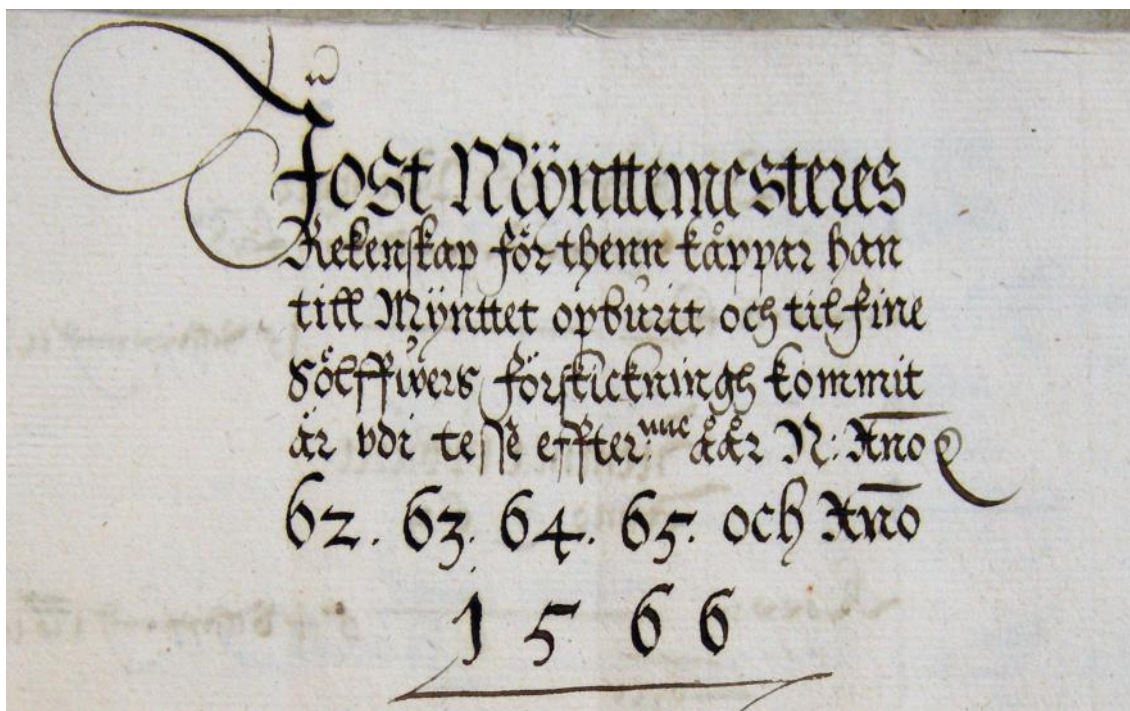 Jost Mÿnttemesteres
Rekenskap för thenn kåppar han
till Mÿnttet opburit och til fine
Sölffwers förskickningh kommit
är vdi tesse effter:nne åår N: Anno
62. 63. 64. 65. och Anno
1566